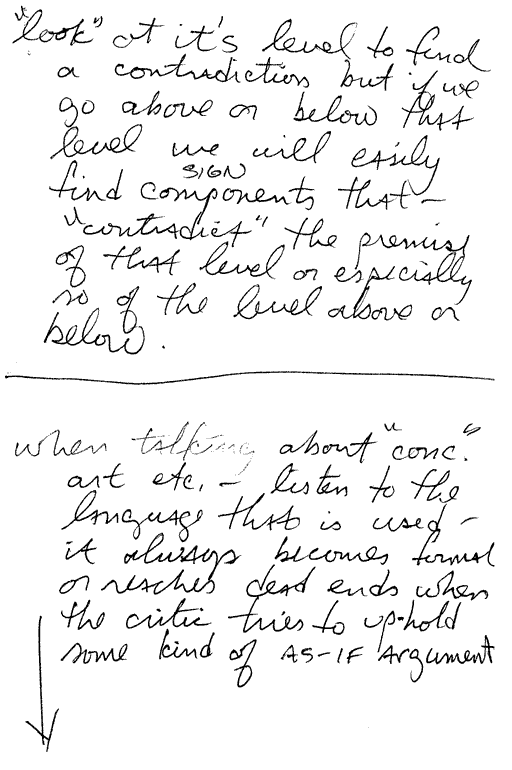 "look" at it's level to find
a contradiction but if we
go above or below that
level we will easily
SIGN
find components that -
"contradict" the premise
of that level or especially
so of the level above or
below.
when talking about "conc."
art etc. - listen to the
language that is used -
it always becomes formal
or reaches dead ends when
the critic tries to up-hold
some kind of AS-IF Argument